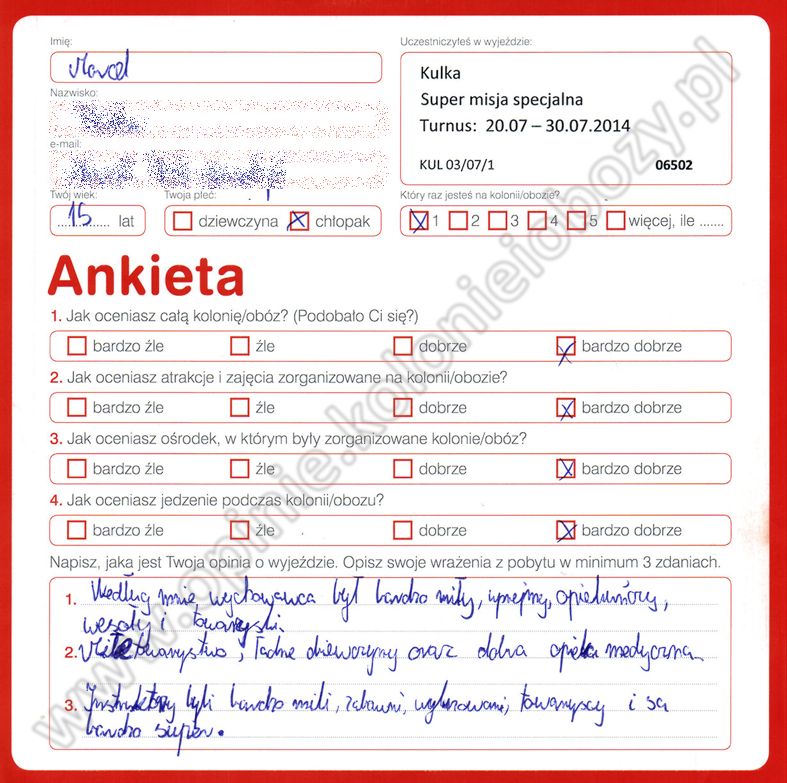 Imię:
Marcel
Uczestniczyłeś w wyjeździe:
Kulka
Super misja specjalna
Turnus: 20.07 – 30.07.2014
KUL 03/07/1 06502
Nazwisko:
e-mail:
Twój wiek:
15 lat
Twoja płeć:
dziewczyna chłopak
Który raz jesteś na kolonii/obozie?
1 2 3 4 5 więcej, ile .......
Ankieta
1. Jak oceniasz całą kolonię/obóz? (Podobało Ci się?)
bardzo źle źle dobrze bardzo dobrze
2. Jak oceniasz atrakcje i zajęcia zorganizowane na kolonii/obozie?
bardzo źle źle dobrze bardzo dobrze
3. Jak oceniasz ośrodek, w którym były zorganizowane kolonie/obóz?
bardzo źle źle dobrze bardzo dobrze
4. Jak oceniasz jedzenie podczas kolonii/obozu?
bardzo źle źle dobrze bardzo dobrze
Napisz, jaka jest Twoja opinia o wyjeździe. Opisz swoje wrażenia z pobytu w minimum 3 zdaniach.
1. Według mnie wychowawca był bardzo miły, uprzejmy, opiekuńczy,
wesoły i towarzyski.
2. Miłe towarzystwo, ładne dziewczyny oraz dobra opieka medyczna
3. Instruktorzy byli bardzo mili, zabawni, wyluzowani, towarzyscy i są
bardzo super.
www.opinie.kolonieiobozy.pl